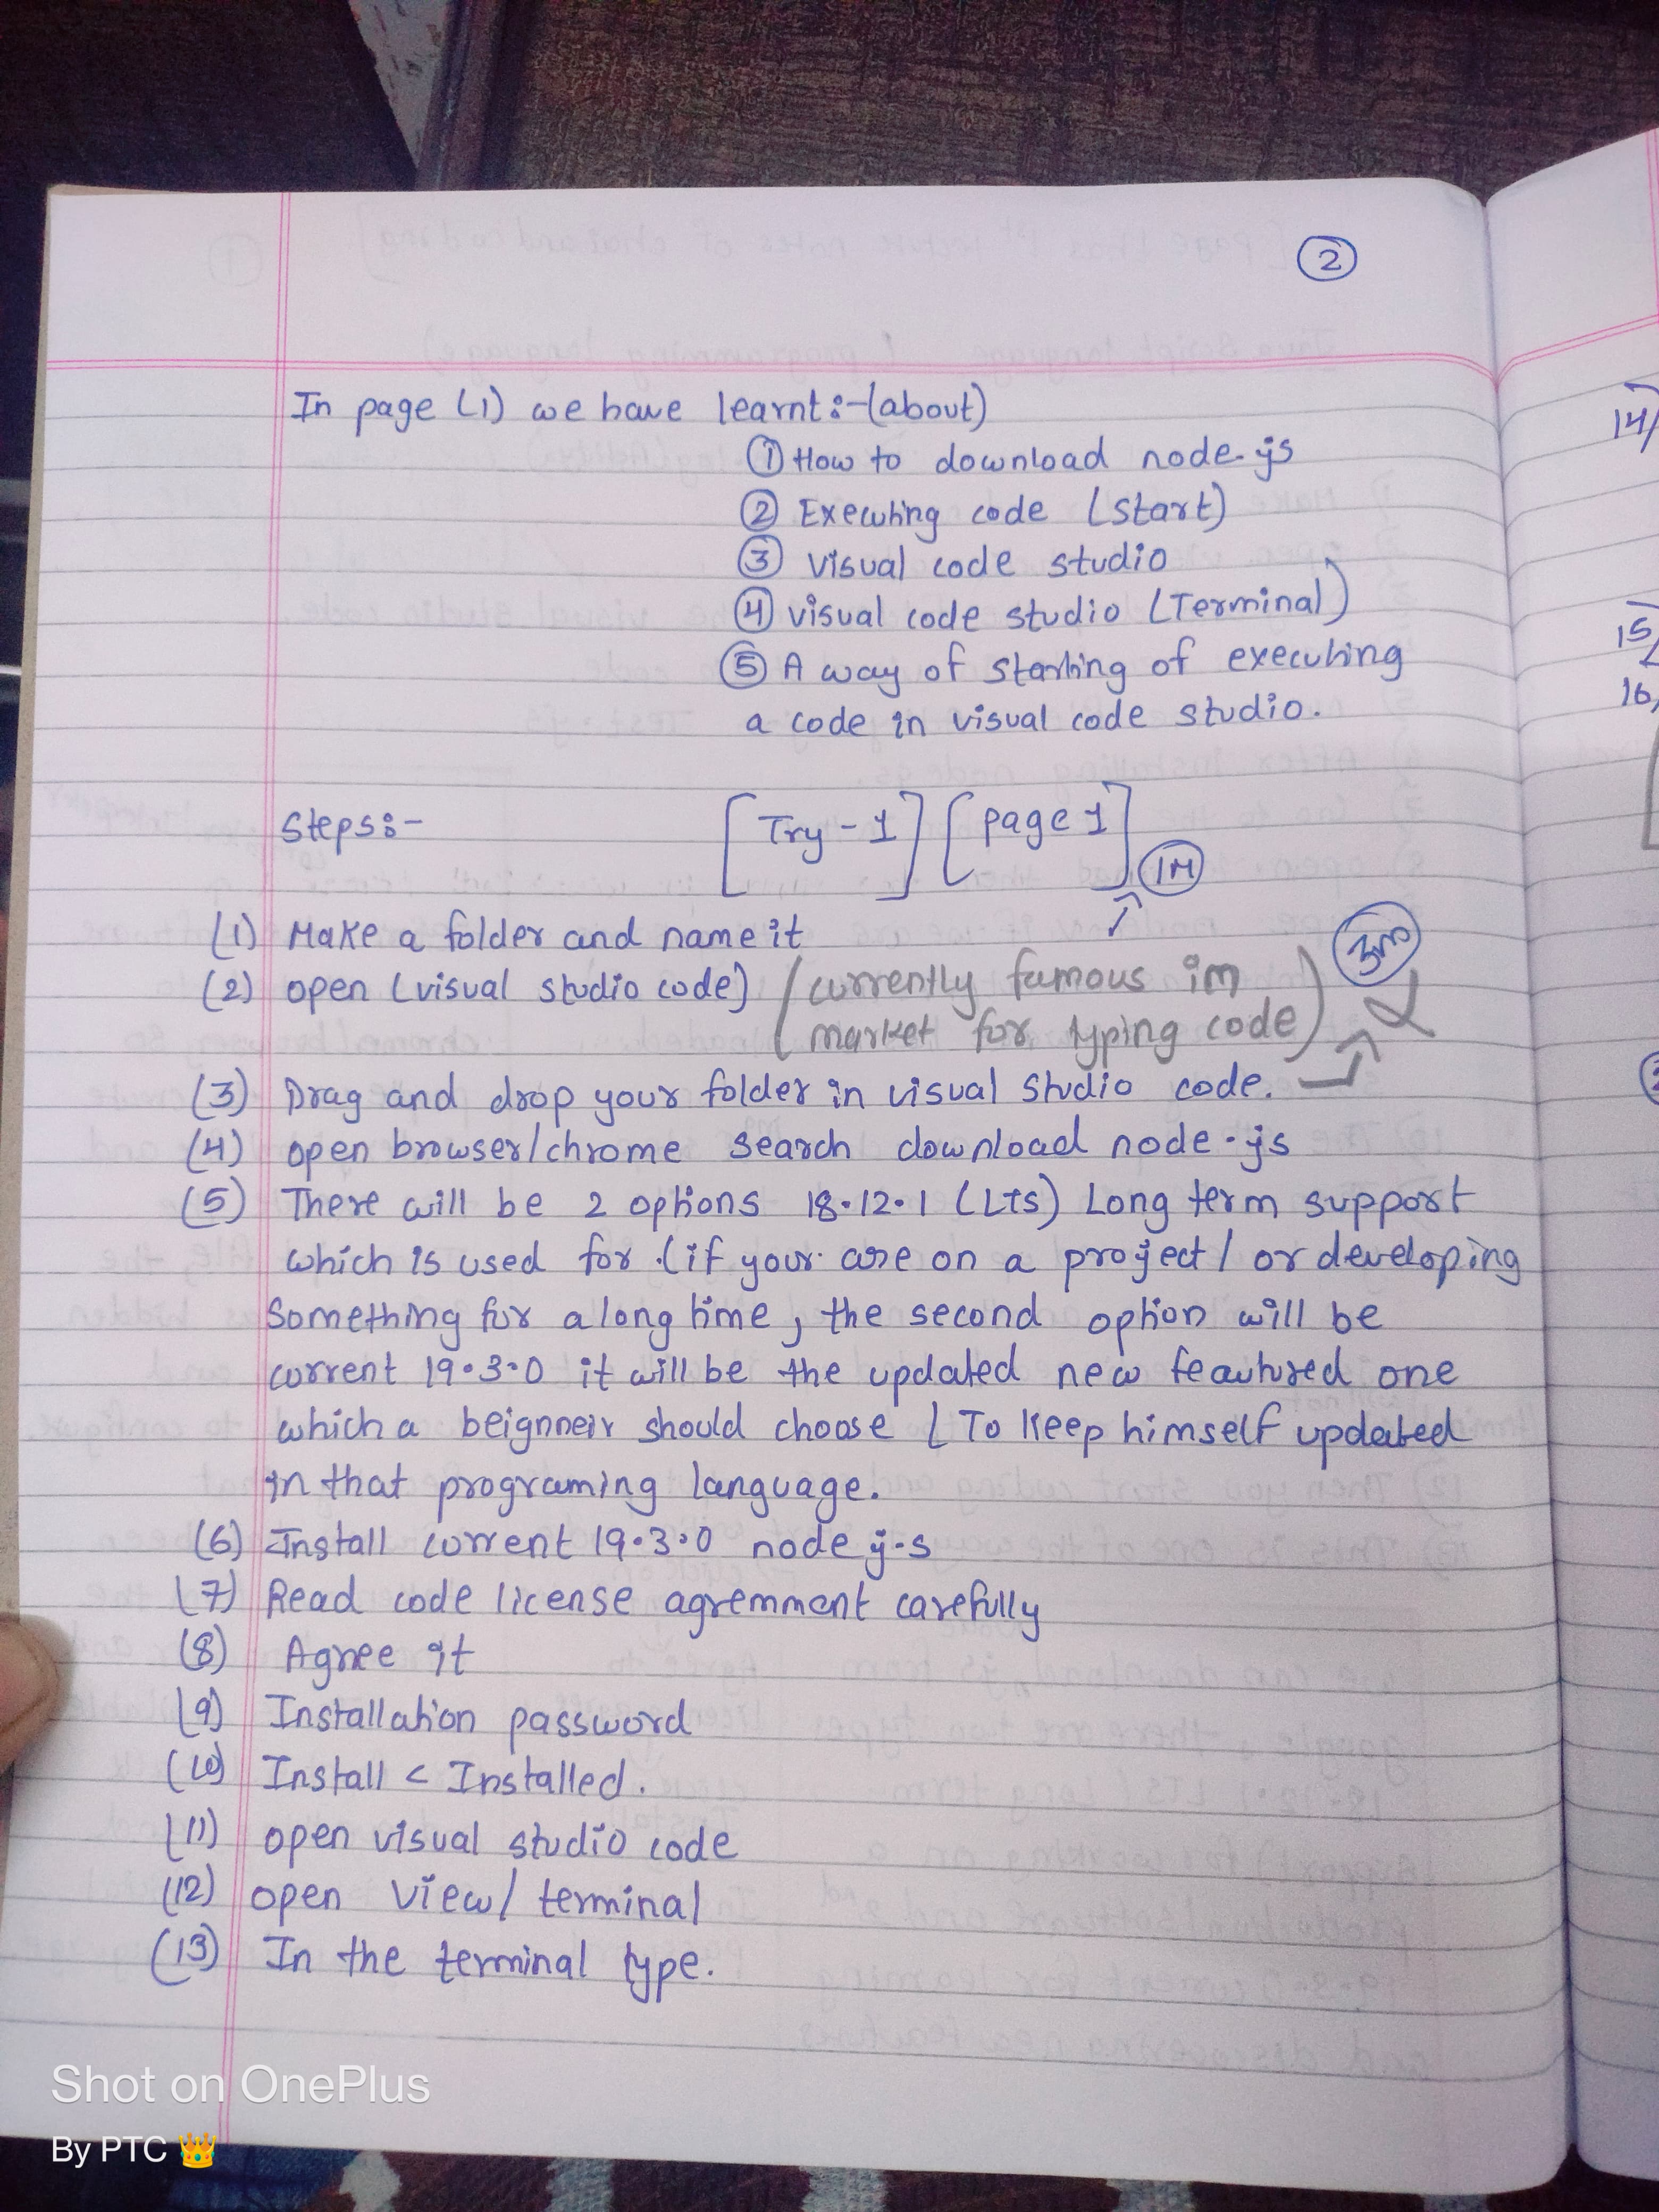 2
In page (1) we have learnt:-(about)
① How to download node.js
② Executing code (start)
③ visual code studio
④ visual code studio (Terminal)
⑤ A way of starting of executing
a code in visual code studio.
Steps:- [Try-1] [page 1] 1M
(1) Make a folder and name it
(2) open (visual studio code) (currently famous im 3m
market for typing code)
(3) Drag and drop your folder in visual studio code.
(4) open browser/chrome search download node.js
(5) There will be 2 options 18.12.1 (LTS) Long term support
which is used for (if your are on a project / or developing
something for a long time, the second option will be
current 19.3.0 it will be the updated new feautured one
which a beignneir should choose ( To keep himself updated
in that programing language.
(6) Install current 19.3.0 node j.s
(7) Read code license agremment carefully
(8) Agree it
(9) Installation password
(10) Install < Installed.
(11) open visual studio code
(12) open view/ terminal
(13) In the terminal type.
14)
15)
16)
Shot on OnePlus
By PTC 👑